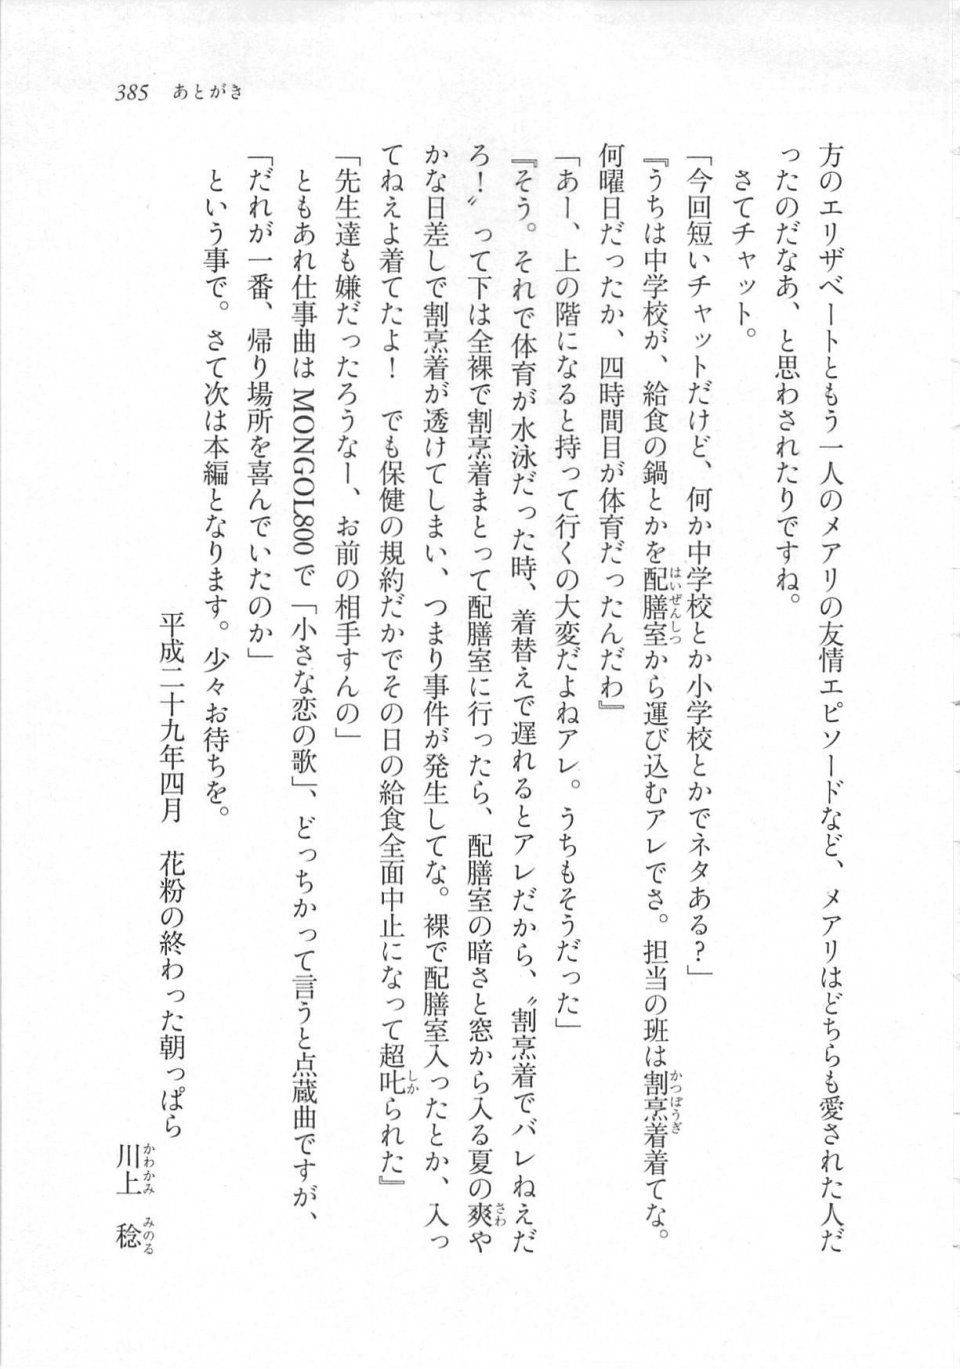 385 あとがき
方のエリザベートともう一人のメアリの友情エピソードなど、メアリはどちらも愛された人だ
ったのだなあ、と思わされたりですね。
さてチャット。
「今回短いチャットだけど、何か中学校とか小学校とかでネタある?」
『うちは中学校が、給食の鍋とかを配膳室から運び込むアレでさ。担当の班は割烹着着てな。
はいぜんしつ
かつぽうぎ
何曜日だったか、四時間目が体育だったんだわ』
「あー、上の階になると持って行くの大変だよねアレ。うちもそうだった」
『そう。それで体育が水泳だった時、着替えで遅れるとアレだから、〝割烹着でバレねえだ
ろ!〟って下は全裸で割烹着まとって配膳室に行ったら、配膳室の暗さと窓から入る夏の爽や
さわ
かな日差しで割烹着が透けてしまい、つまり事件が発生してな。裸で配膳室入ったとか、入っ
てねえよ着てたよ! でも保健の規約だかでその日の給食全面中止になって超叱られた』
しか
「先生達も嫌だったろうなー、お前の相手すんの」
ともあれ仕事曲は MONGOL800 で「小さな恋の歌」、どっちかって言うと点蔵曲ですが、
「だれが一番、帰り場所を喜んでいたのか」
という事で。さて次は本編となります。少々お待ちを。
平成二十九年四月 花粉の終わった朝っぱら
川上 稔
かわかみ みのる